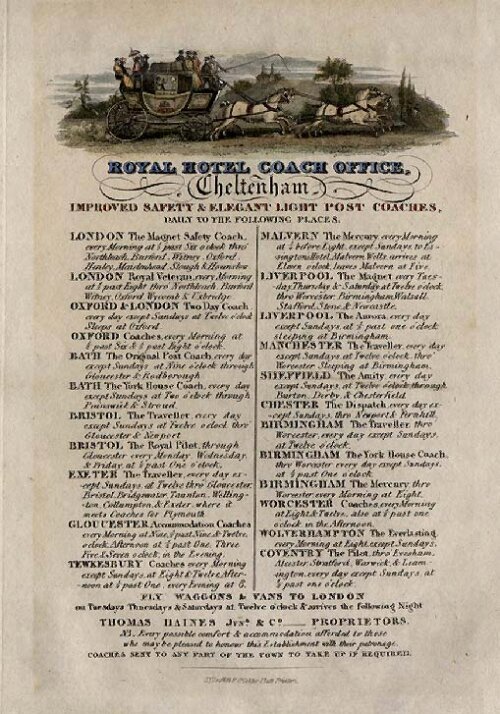 ROYAL HOTEL COACH OFFICE,
Cheltenham
IMPROVED SAFETY & ELEGANT LIGHT POST COACHES,
DAILY TO THE FOLLOWING PLACES.
LONDON The Magnet Safety Coach,
every Morning at ½ past Six o'clock thro'
Northleach, Burford, Witney, Oxford
Henley, Maidenhead Slough & Hounslow
LONDON Royal Veteran, every Morning
at ½ past Eight thro' Northleach, Burford
Witney, Oxford Wycomb & Uxbridge
OXFORD & LONDON Two Day Coach
every day except Sundays at Twelve o'clock
Sleeps at Oxford
OXFORD Coaches, every Morning at
½ past Six & ½ past Eight o'clock.
BATH The Original Post Coach, every day
except Sundays at Nine o'clock through
Gloucester & Rodborough
BATH The York House Coach, every day
except Sundays at Two o'clock through
Painswick & Stroud.
BRISTOL The Traveller, every day
except Sundays at Twelve o'clock thro'
Gloucester & Newport
BRISTOL The Royal Pilot, through
Gloucester every Monday Wednesday,
& Friday at ½ past One o'clock.
EXETER The Traveller, every day ex-
cept Sundays, at Twelve thro' Gloucester,
Bristol, Bridgwater, Taunton, Welling-
ton, Collumpton & Exeter where it
meets Coaches for Plymouth
GLOUCESTER Accommodation Coaches
every Morning at Nine, ½ past Nine, & Twelve
o'clock, Afternoon at ½ past One, Three
Five, & Seven o'clock in the Evening.
TEWKESBURY Coaches every Morning
except Sundays, at Eight & Twelve, After-
noon at ½ past One, every Evening at 6.
MALVERN The Mercury every Morning
at ¼ before Eight, except Sundays to Es-
sington's Hotel, Malvern Wells arrives at
Eleven o'clock, leaves Malvern at Five.
LIVERPOOL The Magnet every Tues-
day, Thursday & Saturday at Twelve o'clock,
thro Worcester, Birmingham, Walsall,
Stafford, Stone, & Newcastle.
LIVERPOOL The Aurora, every day
except Sundays at ½ past one o'clock
sleeping at Birmingham.
MANCHESTER The Traveller, every day
except Sundays, at Twelve o'clock, thro'
Worcester Sleeping at Birmingham.
SHEFFIELD The Amity, every day
except Sundays, at Twelve o'clock, through
Burton, Derby, & Chesterfield
CHESTER The Dispatch, every day ex-
cept Sundays, thro'
BIRMINGHAM The Traveller, thro'
Worcester, every day except Sundays,
at Twelve o'clock.
BIRMINGHAM The York House Coach,
thro Worcester every day except Sundays,
at ½ past one o'clock
BIRMINGHAM The Mercury, thro'
Worcester every Morning at Eight.
WORCESTER Coaches, every Morning
at Eight & Twelve, also at ½ past one
o'clock in the Afternoon.
WOLVERHAMPTON The Everlasting,
every Morning at Eight, except Sundays.
COVENTRY The Pilot, thro' Evesham,
Alcester, Stratford, Warwick, & Leam-
ington, every day except Sundays, at
½ past one o'clock.
FLY WAGGONS & VANS TO LONDON
on Tuesdays Thursdays & Saturdays at Twelve o'clock & arrives the following Night
THOMAS HAINES Junr. & Co. PROPRIETORS.
NB. Every possible comfort & accommodation afforded to those
who may be pleased to honour this Establishment with their patronage.
COACHES SENT TO ANY PART OF THE TOWN TO TAKE UP IF REQUIRED.